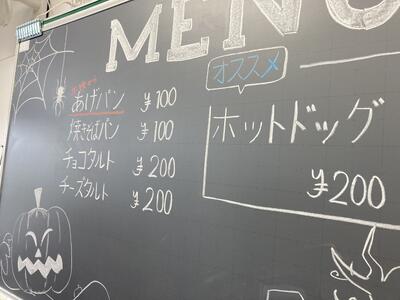 MENU
オススメ
あげパン ¥100
焼きそばパン ¥100
チョコタルト ¥200
チーズタルト ¥200
ホットドッグ
¥200